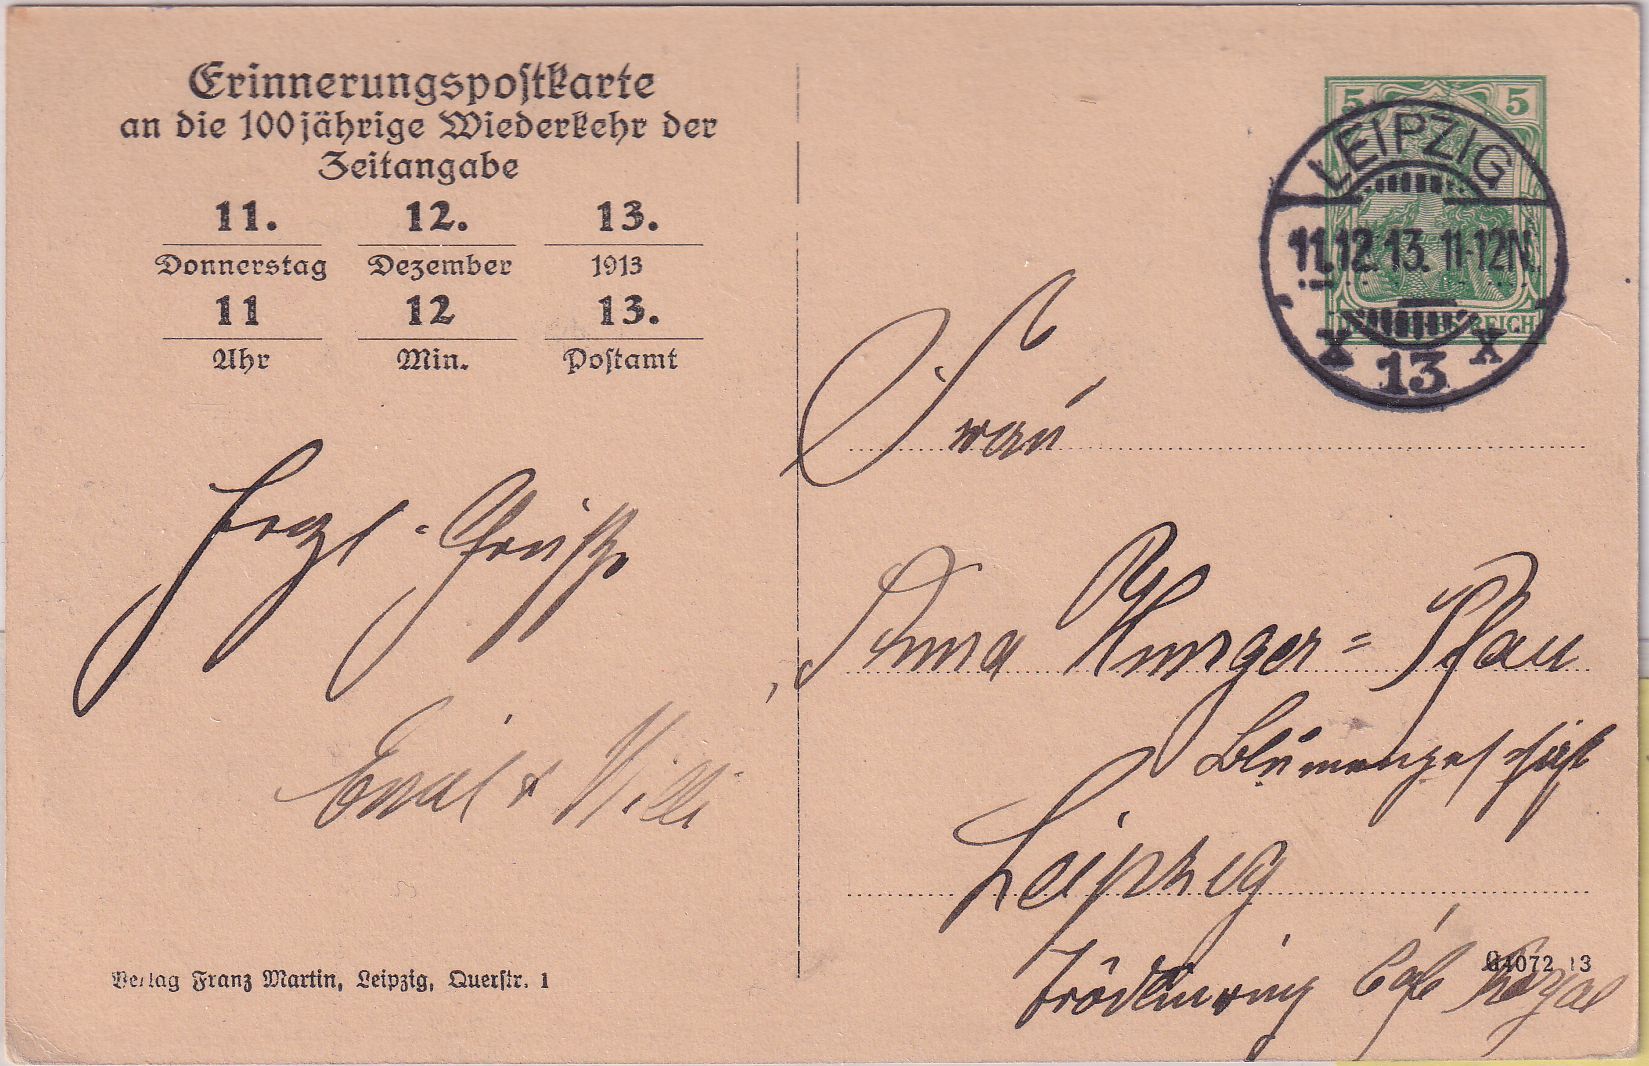 Erinnerungspostkarte
an die 100jährige Wiederkehr der
Zeitangabe
11. 12. 13.
Donnerstag Dezember 1913
11 12 13.
Uhr Min. Postamt
5 5
LEIPZIG
11.12.13. 11-12N.
REICH
13
Frau
Herzl. Grüße
Anna Hunger = Pfau
Blumengeschäft
Emil & Willi
Leipzig
Tröndlinring Café Royal
Verlag Franz Martin, Leipzig, Querstr. 1
G4072 13